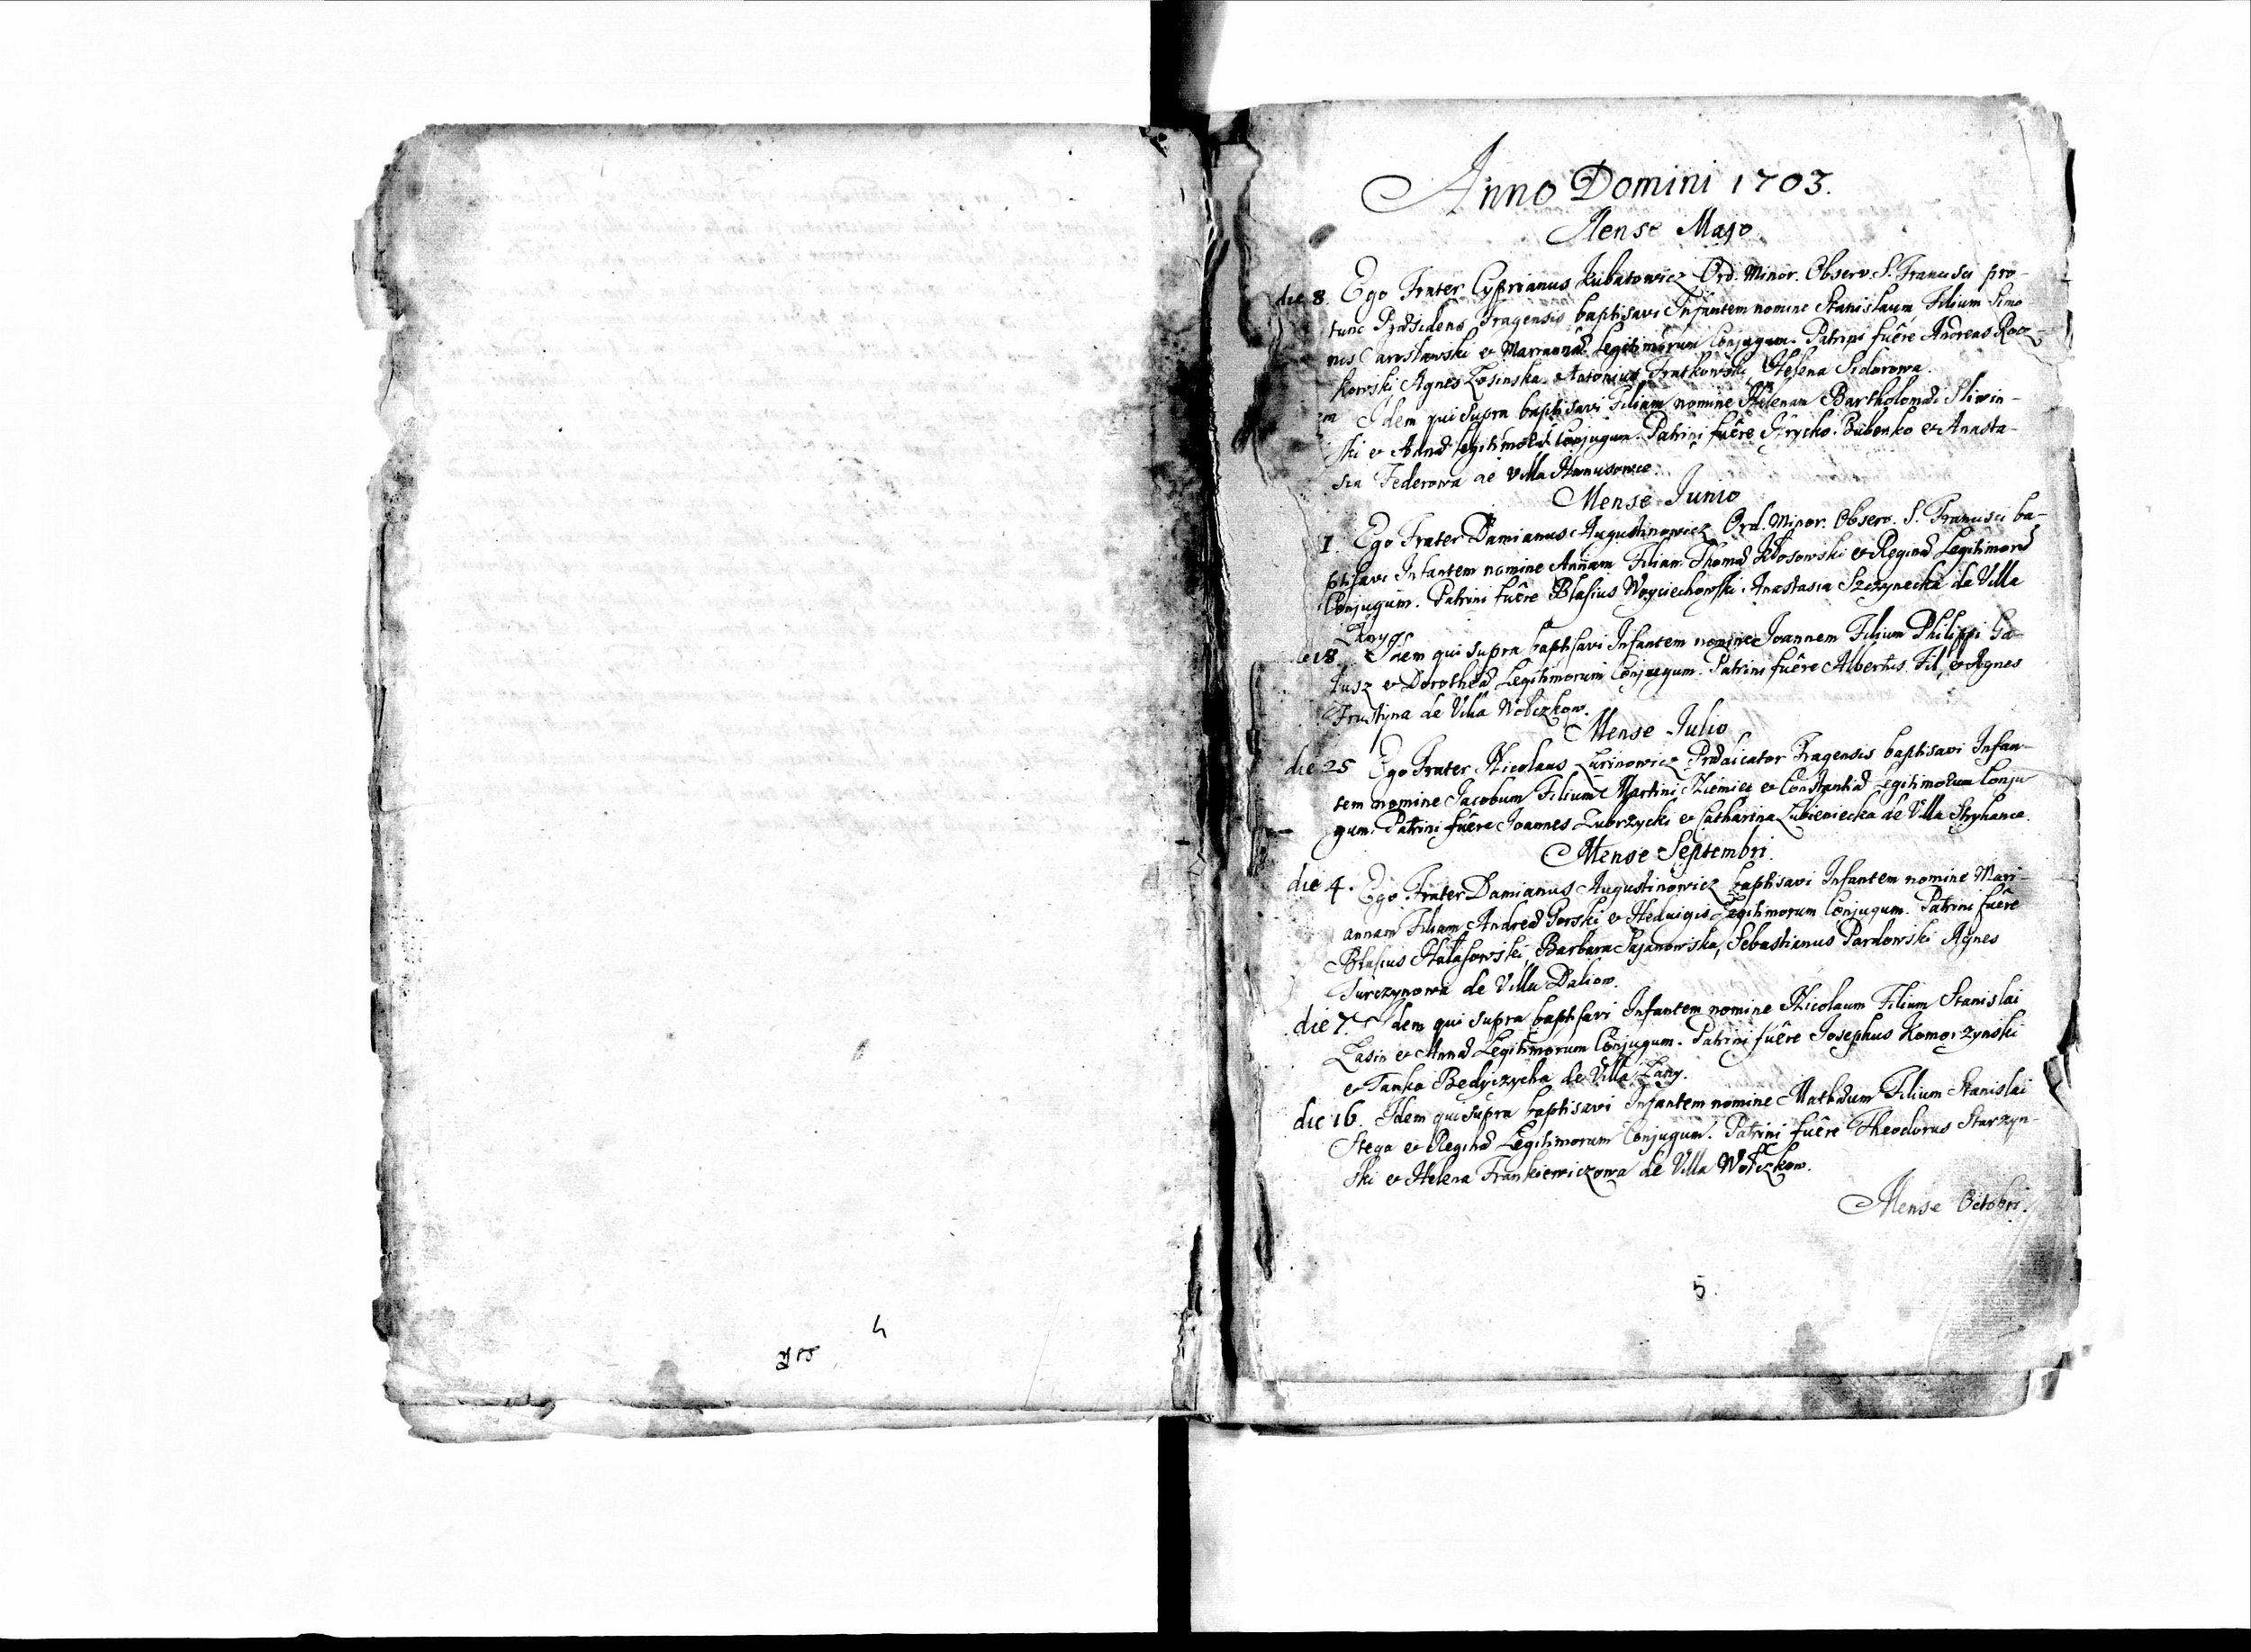 Anno Domini 1703.
Mense Majo
die 8. Ego Frater Cyprianus Kubatowicz Ord. Minor. Observ. S. Francisci pro
tunc Præsidens Fragensis baptisavi Infantem nomine Stanislaum Filium Simo
nis Jarosławski et Mariannæ Legitimorum Conjugum. Patrini fuêre Andreas Rocz-
kowski Agnes Zosinska. Antonius Fratkowski Helena Sidorowa.
Idem qui supra baptisavi Filiam nomine Helenam Bartholomæi Sliwin-
ski et Annæ legitimorũ Conjugum. Patrini fuêre Hrycko Bubenko et Anasta-
sia Federowa de Villa Hanusowce.
Mense Junio
1. Ego Frater Damianus Augustinowicz Ord. Minor. Observ. S. Francisci ba-
ptisavi Infantem nomine Annam Filiam Thomæ Kłosowski et Reginæ Legitimorũ
Conjugum. Patrini fuêre Blasius Woyciechowski. Anastasia Szczynecka de Villa
Łany.
18. Idem qui supra baptisavi Infantem nomine Joannem Filium Philippi Ga-
lusz et Dorotheæ Legitimorum Conjugum. Patrini fuêre Albertus Fil, et Agnes
Frustyna de Villa Wołczkow.
Mense Julio
die 25 Ego Frater Nicolaus Zurinowicz Prædicator Fragensis baptisavi Infan-
tem nomine Jacobum Filium Martini Niemiec et Constantiæ Legitimorum Conju
gum. Patrini fuêre Joannes Zubrzycki et Catharina Zubieniecka de Villa Stryhance.
Mense Septembri.
die 4. Ego Frater Damianus Augustinowicz baptisavi Infantem nomine Mari-
annam Filiam Andreæ Gorski et Heduigis Legitimorum Conjugum. Patrini fuêre
Blasius Hałasowski Barbara Sajanowska, Sebastianus Pardowski Agnes
Turczynowa de Villa Daliow.
die 7. Idem qui supra baptisavi Infantem nomine Nicolaum Filium Stanislai
Łasin et Annæ Legitimorum Conjugum. Patrini fuêre Josephus Komorzynski
et Tanka Bedyczycha de Villa Łany.
die 16. Idem qui supra baptisavi Infantem nomine Mathæum Filium Stanislai
Stega et Reginæ Legitimorum Conjugum. Patrini fuêre Theodorus Starzyn-
ski et Helena Frankiewiczowa de Villa Wołczkow.
Mense Octobri.
5.
4